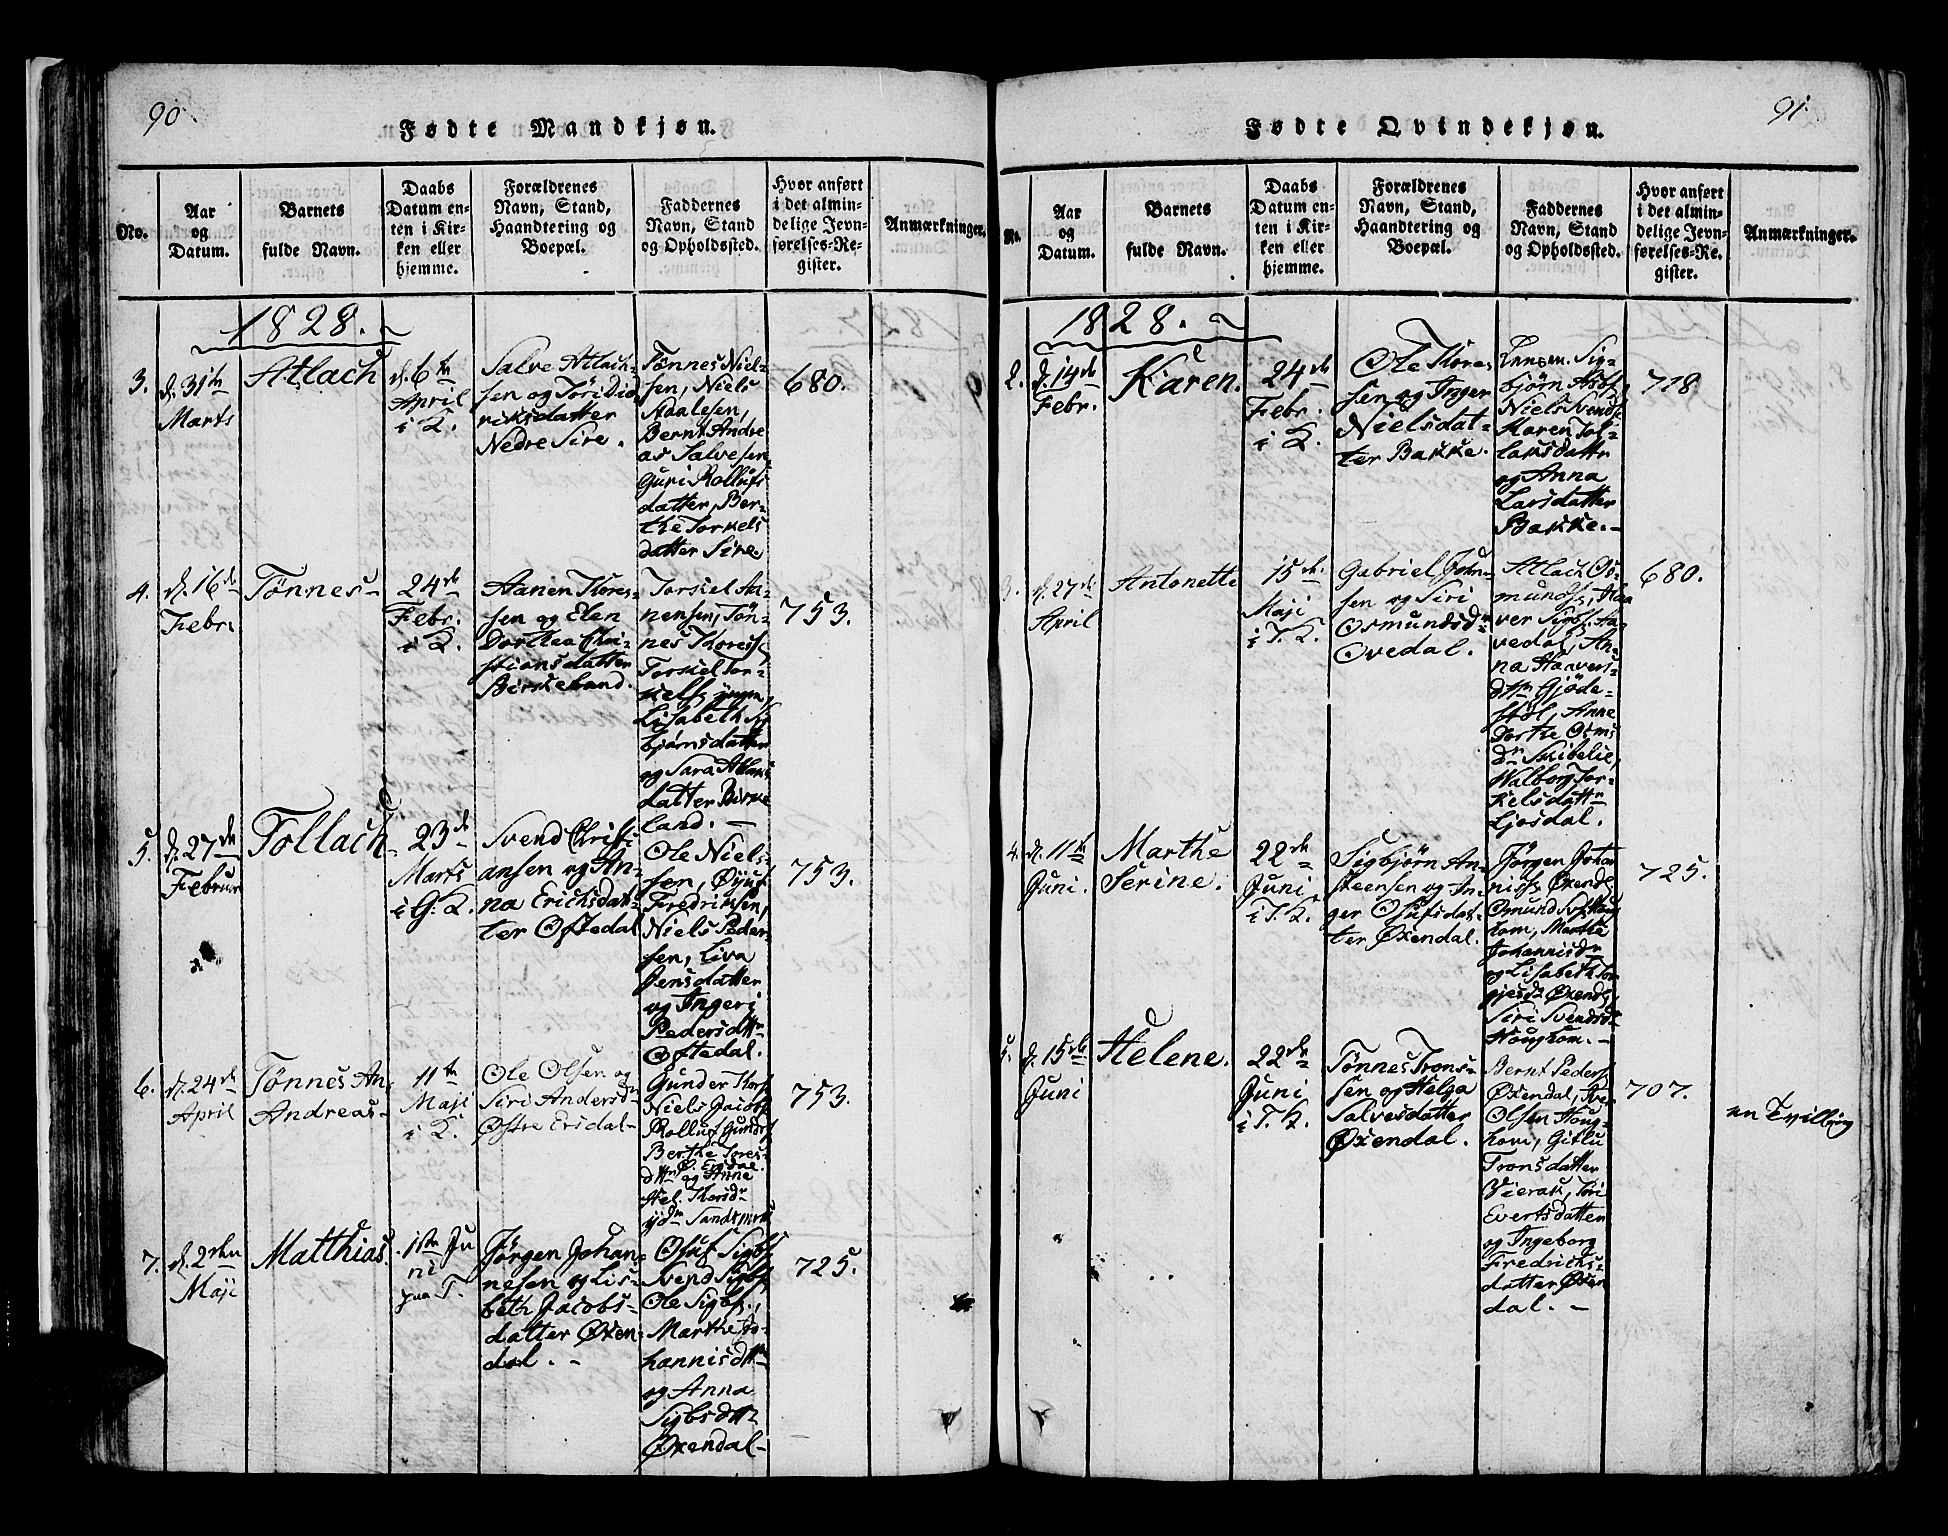 90.
Fødte Mandkjøn.
No.
Aar
og
Datum.
Barnets
fulde Navn.
Daabs
Datum en-
ten i Kir-
ken eller
hjemme.
Forældrenes
Navn, Stand,
Haandtering og
Boepæl.
Faddernes
Navn, Stand
og Opholdssted.
Hvor anført
i det almin-
delige Jevn-
førelses-Re-
gister.
Anmærkninger.
1828.
3.
d. 31te
Marts
Atlach
d. 6te
April
i K.
Salve Atlach-
sen og Töri Did
riksdatter
Nedre Sire.
Tønnes Niel-
sen, Niels
Adalesen,
Bernt Andre
as Salvesen
Guri Rollufs
datter, Ber-
the Torkels
datter Sire.
680.
4.
d. 16de
Febr.
Tønnes
24de
Febr.
i K.
Aanen Thores-
sen og Elen
Dorthea Chri-
stiansdatter
Birkeland.
Torkiel Aa-
nensen, Tøn-
nes Thoress.
Torkiel Tor-
kielss. yngre,
Lisabeth Sig
bjørnsdatter
og Sara Atlaks
datter Birke
land.
753.
5.
d. 27de
Februar
Tollach
23de
Marts
i G. K.
Svend Christi
ansen og An-
na Erichsdat-
ter Oftedal
Ole Niels-
sen, Øyuf
Fredriksen,
Niels Peder-
sen, Liva
Jensdatter
og Ingeri
Pedersdttr
Oftedal.
753.
6.
d. 24de
April
Tønnes An
Andreas
11te
Maji
i K.
Ole Olsen og
Siri Andersdr
Østre Ersdal
Gunder Thors
Niels Jacobs
Rolluf Gunders
Berthe Tores-
dttr Ø. Ersdal.
og Anne
Hel. Thorsdr
753.
7.
d. 2den
Maji
Matthias.
1ste Ju
ni
paa T.
Jørgen Johan-
nesen og Lis-
beth Jacobs-
datter Øxen
dal.
Osuf Sigbs.
Svend Sigbs.
Ole Sigbs.,
Marthe Jo-
hannisdttr
og Anna
Sigbsdttr
Øxendal
725.
91.
Fødte Qvindekjøn.
Nr.
Aar
og
Datum.
Barnets
fulde Navn.
Daabs
Datum en-
ten i Kir-
ken eller
hjemme.
Forældrenes
Navn, Stand,
Haandtering og
Boepæl.
Faddernes
Navn, Stand
og Opholdssted.
Hvor anført
i det almin-
delige Jevn-
førelses-Re-
gister.
Anmærkninger.
1828.
2.
d. 14de
Febr.
Karen.
24de
Febr.
i K.
Ole Thores
sen og Inger
Nielsdat-
ter Bakke.
Sig-
bjørn Asbs.
Niels Svends.
Karen Tol-
laksdattr
og Anna
Larsdatter
Bakke.
718.
3.
d. 27de
April
Antonette
15de
Maji
i T. K.
Gabriel John-
sen og Siri
Osmundsdr
Ovedal.
Atlach Os-
munds., Haa
ver Sigbs. Aa-
vedal, An-
na Haavers-
dttr Gjøde-
stöl, Anne
Dorthe Osms
dr Skibelie,
Walborg Tor-
kelsdattr
Ljosdal.
680.
4.
d. 11te
Juni.
Marthe
Serine.
22de
Juni
i T. K.
Sigbjørn An-
steensen og In-
ger Osufsdat-
ter Øxendal.
Jørgen Johan
niss. Øxendl.
Osmund Svds. Houg
hom, Marthe
Johannisdr
og Lisabeth Tor
gjesdr Øxendl.
Siri Svendsdr
Houghom.
725.
5.
d. 15de
Juni
Helene.
22de
Juni
i T. K.
Tønnes Trons-
sen og Helga
Salvesdatter
Øxendal.
Bernt Peders
Øxendal, Sve
Olsen Houg-
hom, Gitlu
Tronsdatter
Vierak, Tori
Evertsdatter
og Ingeborg
Fredrichs-
datter Øxen
dal.
707.
en Tvilling